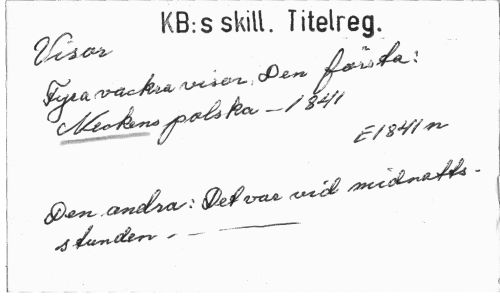 KB:s skill. Titelreg.
Visor
Fyra vackra visor. Den första:
Neckens polska - 1841
E1841n
Den andra: Det var vid midnatts-
stunden - -